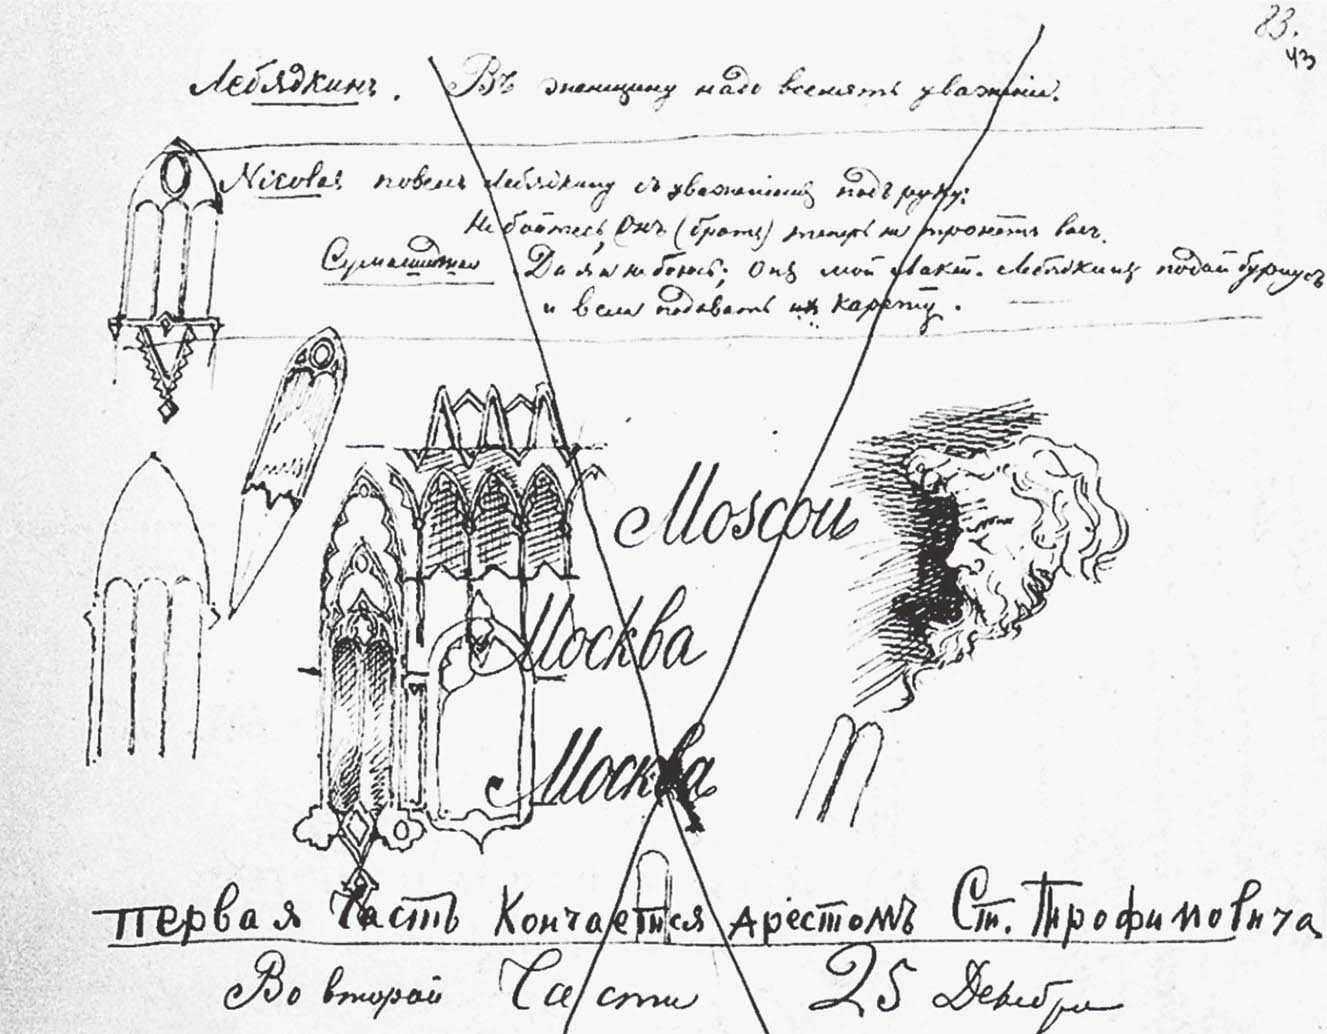 83.
43
Лебядкинъ. Въ женщину надо вселять уваженіе.
Nicolas повелъ Лебядкину съ уваженіемъ подъ руку:
Не бойтесь, Онъ (братъ) теперь не тронетъ васъ.
Сумасшедшая Да я и не боюсь; онъ мой лакей. Лебядкинъ подай
и велла подавать карету.
Moscou
Москва
Москва
Первая Часть Кончается арестомъ Ст. Трофимовича
Во второй Части 25 Декабря